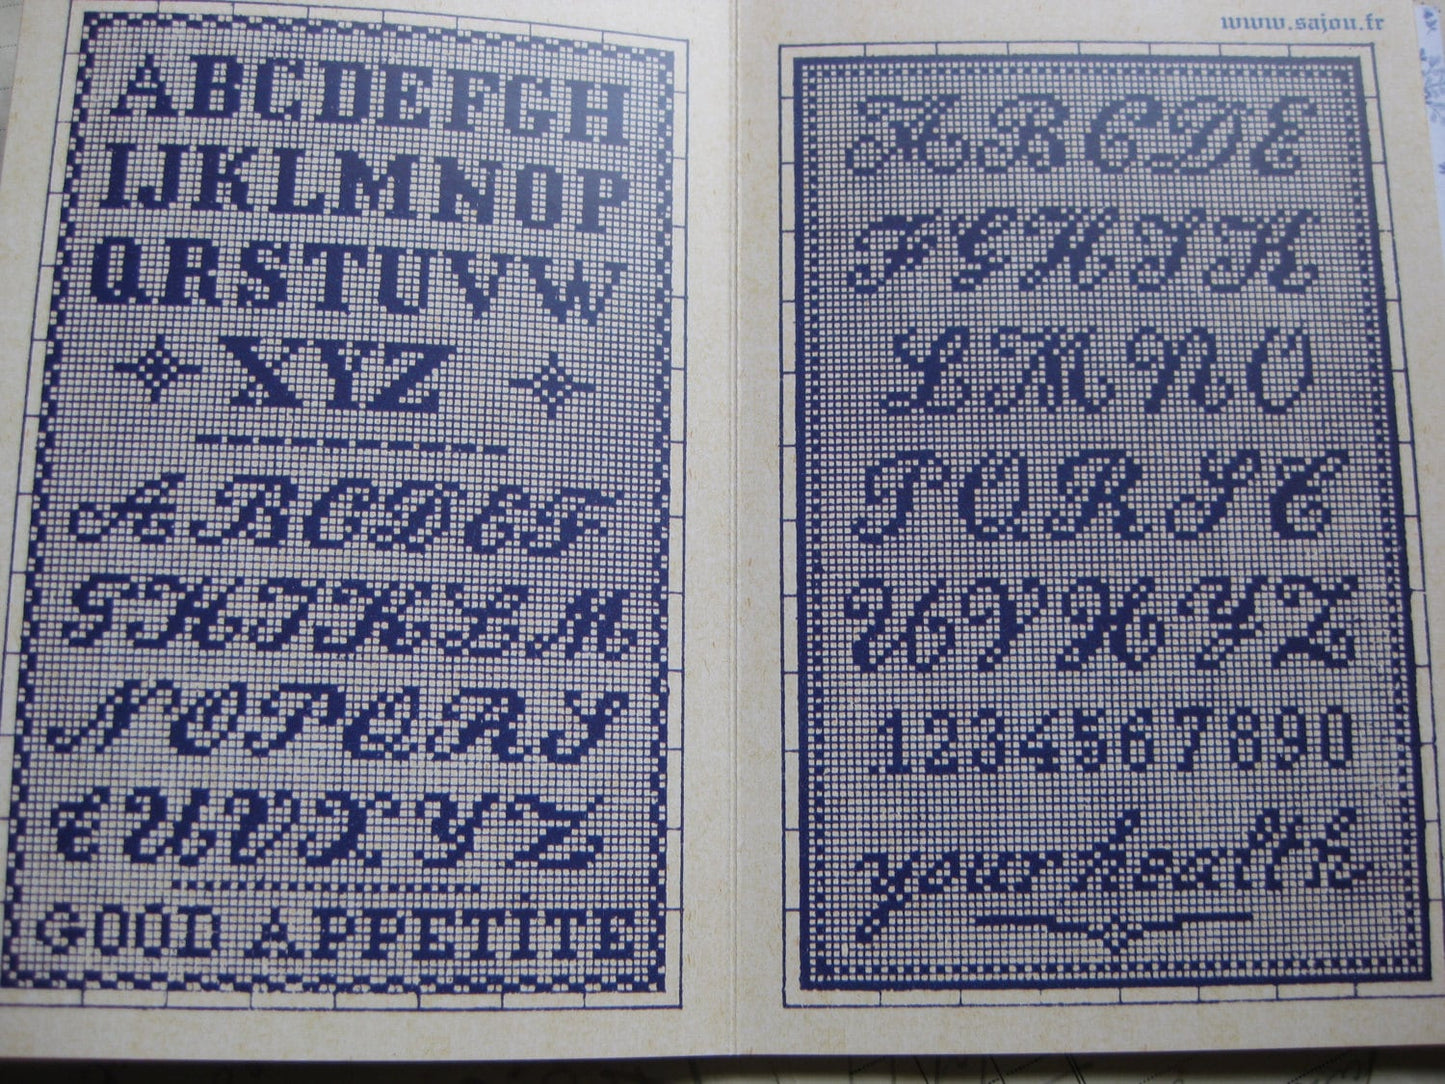 ABCDEFGH
IJKLMNOP
QRSTUVW
XYZ
ABCDEF
GHIKLM
NOPQRS
TUVXYZ
GOOD APPETİTE
www.sajou.fr
ABCDE
FGHIK
LMNO
PQRST
UVXYZ
.1234567890
your health